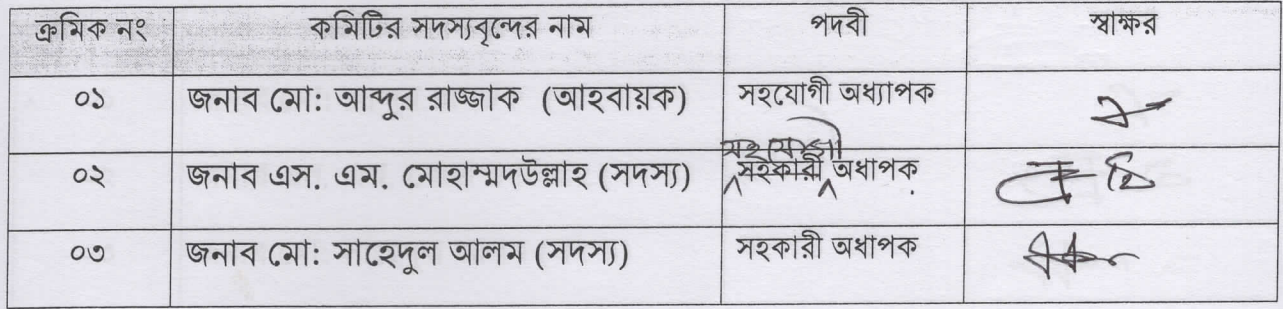 ক্রমিক নং কমিটির সদস্যবৃন্দের নাম পদবী স্বাক্ষর
০১ জনাব মো: আব্দুর রাজ্জাক (আহবায়ক) সহযোগী অধ্যাপক
সহযোগী
০২ জনাব এস. এম. মোহাম্মদউল্লাহ (সদস্য) সহকারী অধাপক
০৩ জনাব মো: সাহেদুল আলম (সদস্য) সহকারী অধাপক